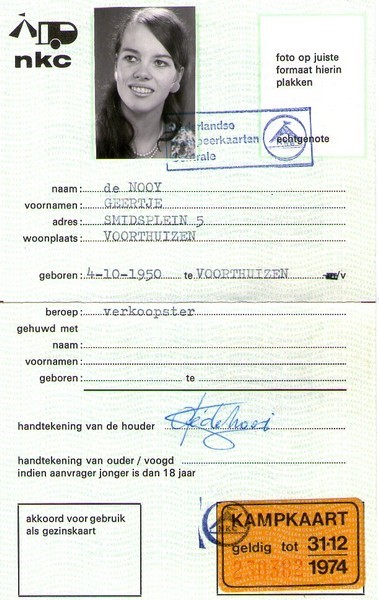 nkc
foto op juiste
formaat hierin
plakken
echtgenote
naam: de NOOY
voornamen: GEERTJE
adres: SMIDSPLEIN 5
woonplaats: VOORTHUIZEN
geboren: 4-10-1950 te VOORTHUIZEN /v
beroep: verkoopster
gehuwd met
naam:
voornamen:
geboren: te
handtekening van de houder
handtekening van ouder / voogd
indien aanvrager jonger is dan 18 jaar
akkoord voor gebruik
als gezinskaart
KAMPKAART
geldig tot 31-12
1974